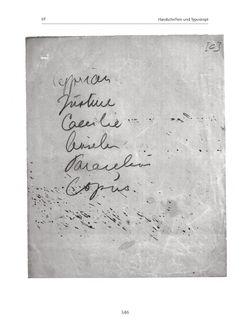 Handschriften und Typoskript
[C]
Cyprian
Justine
Caecilie
Anselm
Paracelsus
Corpus
146